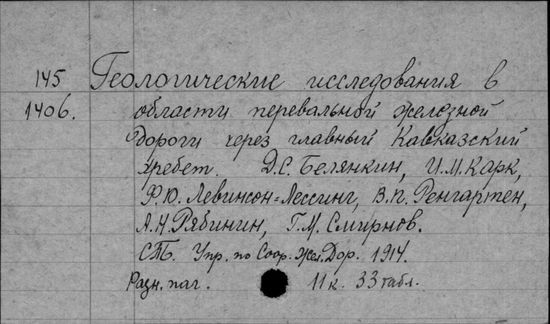 145 Геологические исследования в
1406. области перевальной железной
дороги через главный Кавказский
хребет. Д.С. Белянкин, И.М. Карк,
Ф.Ю. Левинсон-Лессинг, В.П. Ренгартен,
А.Н. Рябинин, Г.М. Смирнов.
СПБ. Упр. по Соор. Жел. Дор. 1914.
Разн. паг. 11 к. 33 табл.